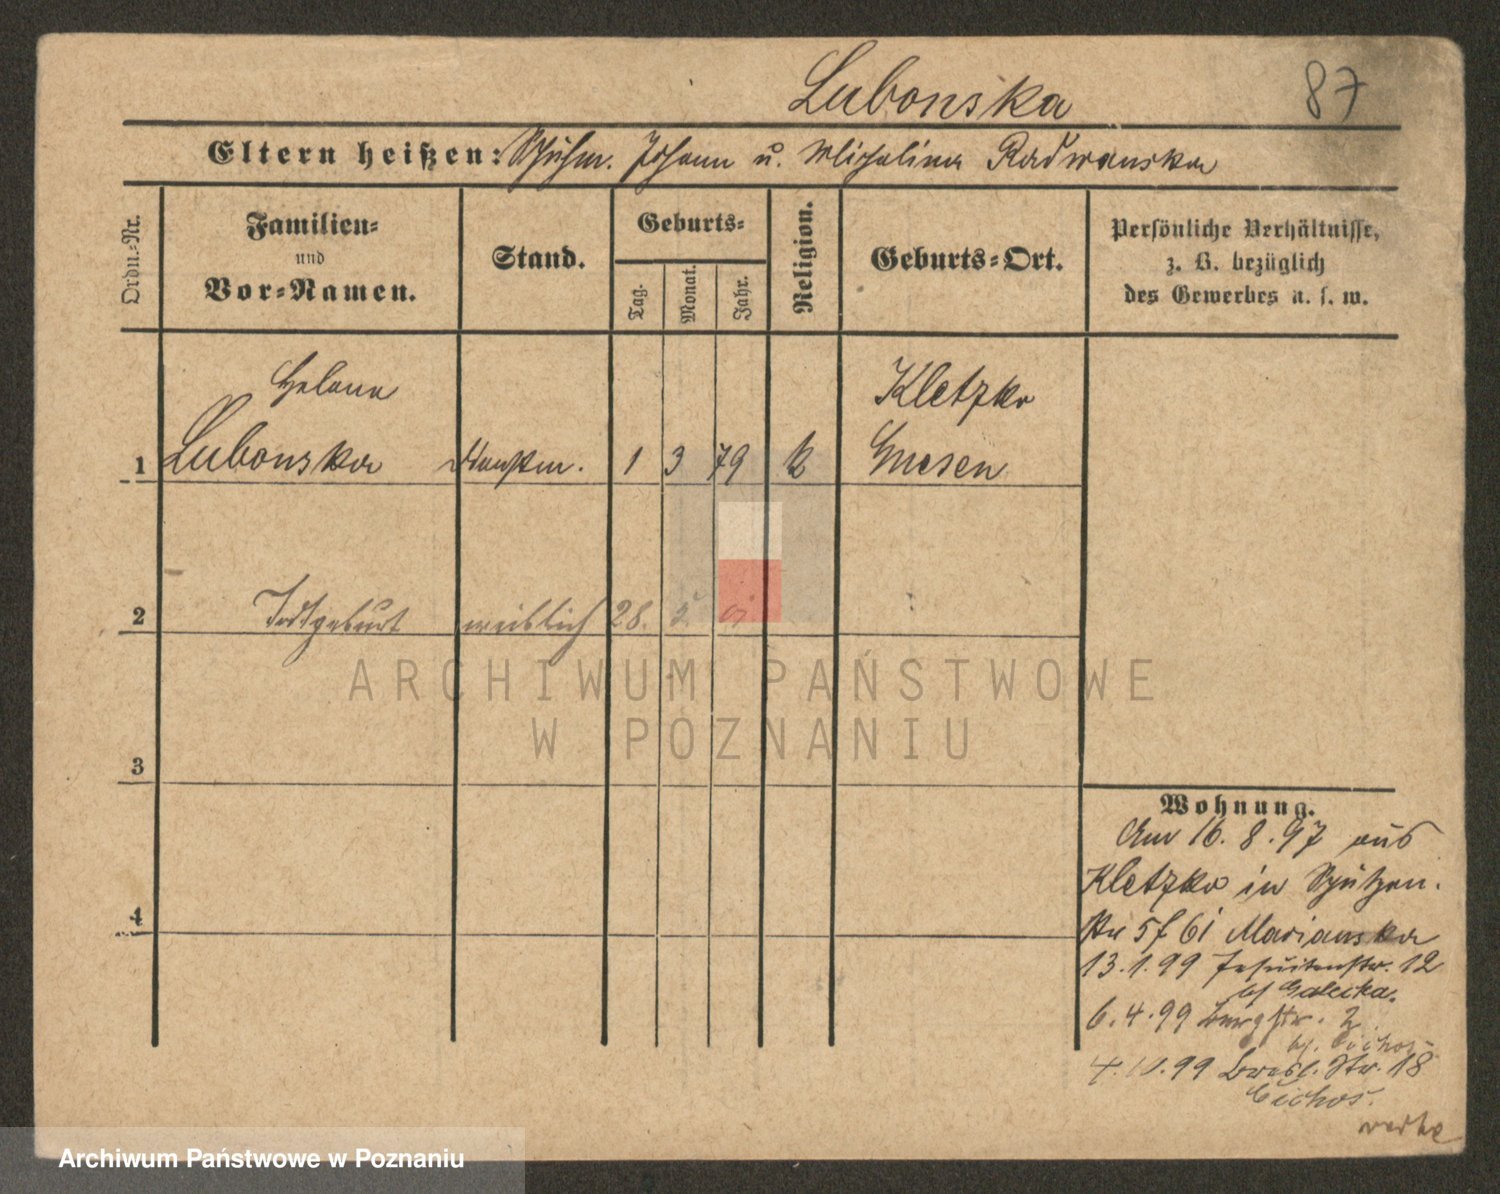 Lubonska 87
Eltern heißen: Schuhm. Johann u. Michalina Radwanska
Ordn.-Nr.
Familien-
und
Vor-Namen.
Stand.
Geburts-
Tag.
Monat.
Jahr.
Religion.
Geburts-Ort.
Persönliche Verhältnisse,
z. B. bezüglich
des Gewerbes u. s. w.
Helena Kletzko
1 Lubonska 1 3 79 k Gnesen
2 Todtgeburt weiblich 28.
ARCHIWUM PAŃSTWOWE
W POZNANIU
3
Wohnung.
Am 16. 8. 97 aus
Kletzko in Schützen.
4
str 5 f 61 Marianska
13.1.99 Jesuitenstr. 12
bf Galecka.
6.4.99 Burgstr. 2
bf. Cichos
4.10.99 Bresl. Str. 18
Cichos.
Archiwum Państwowe w Poznaniu